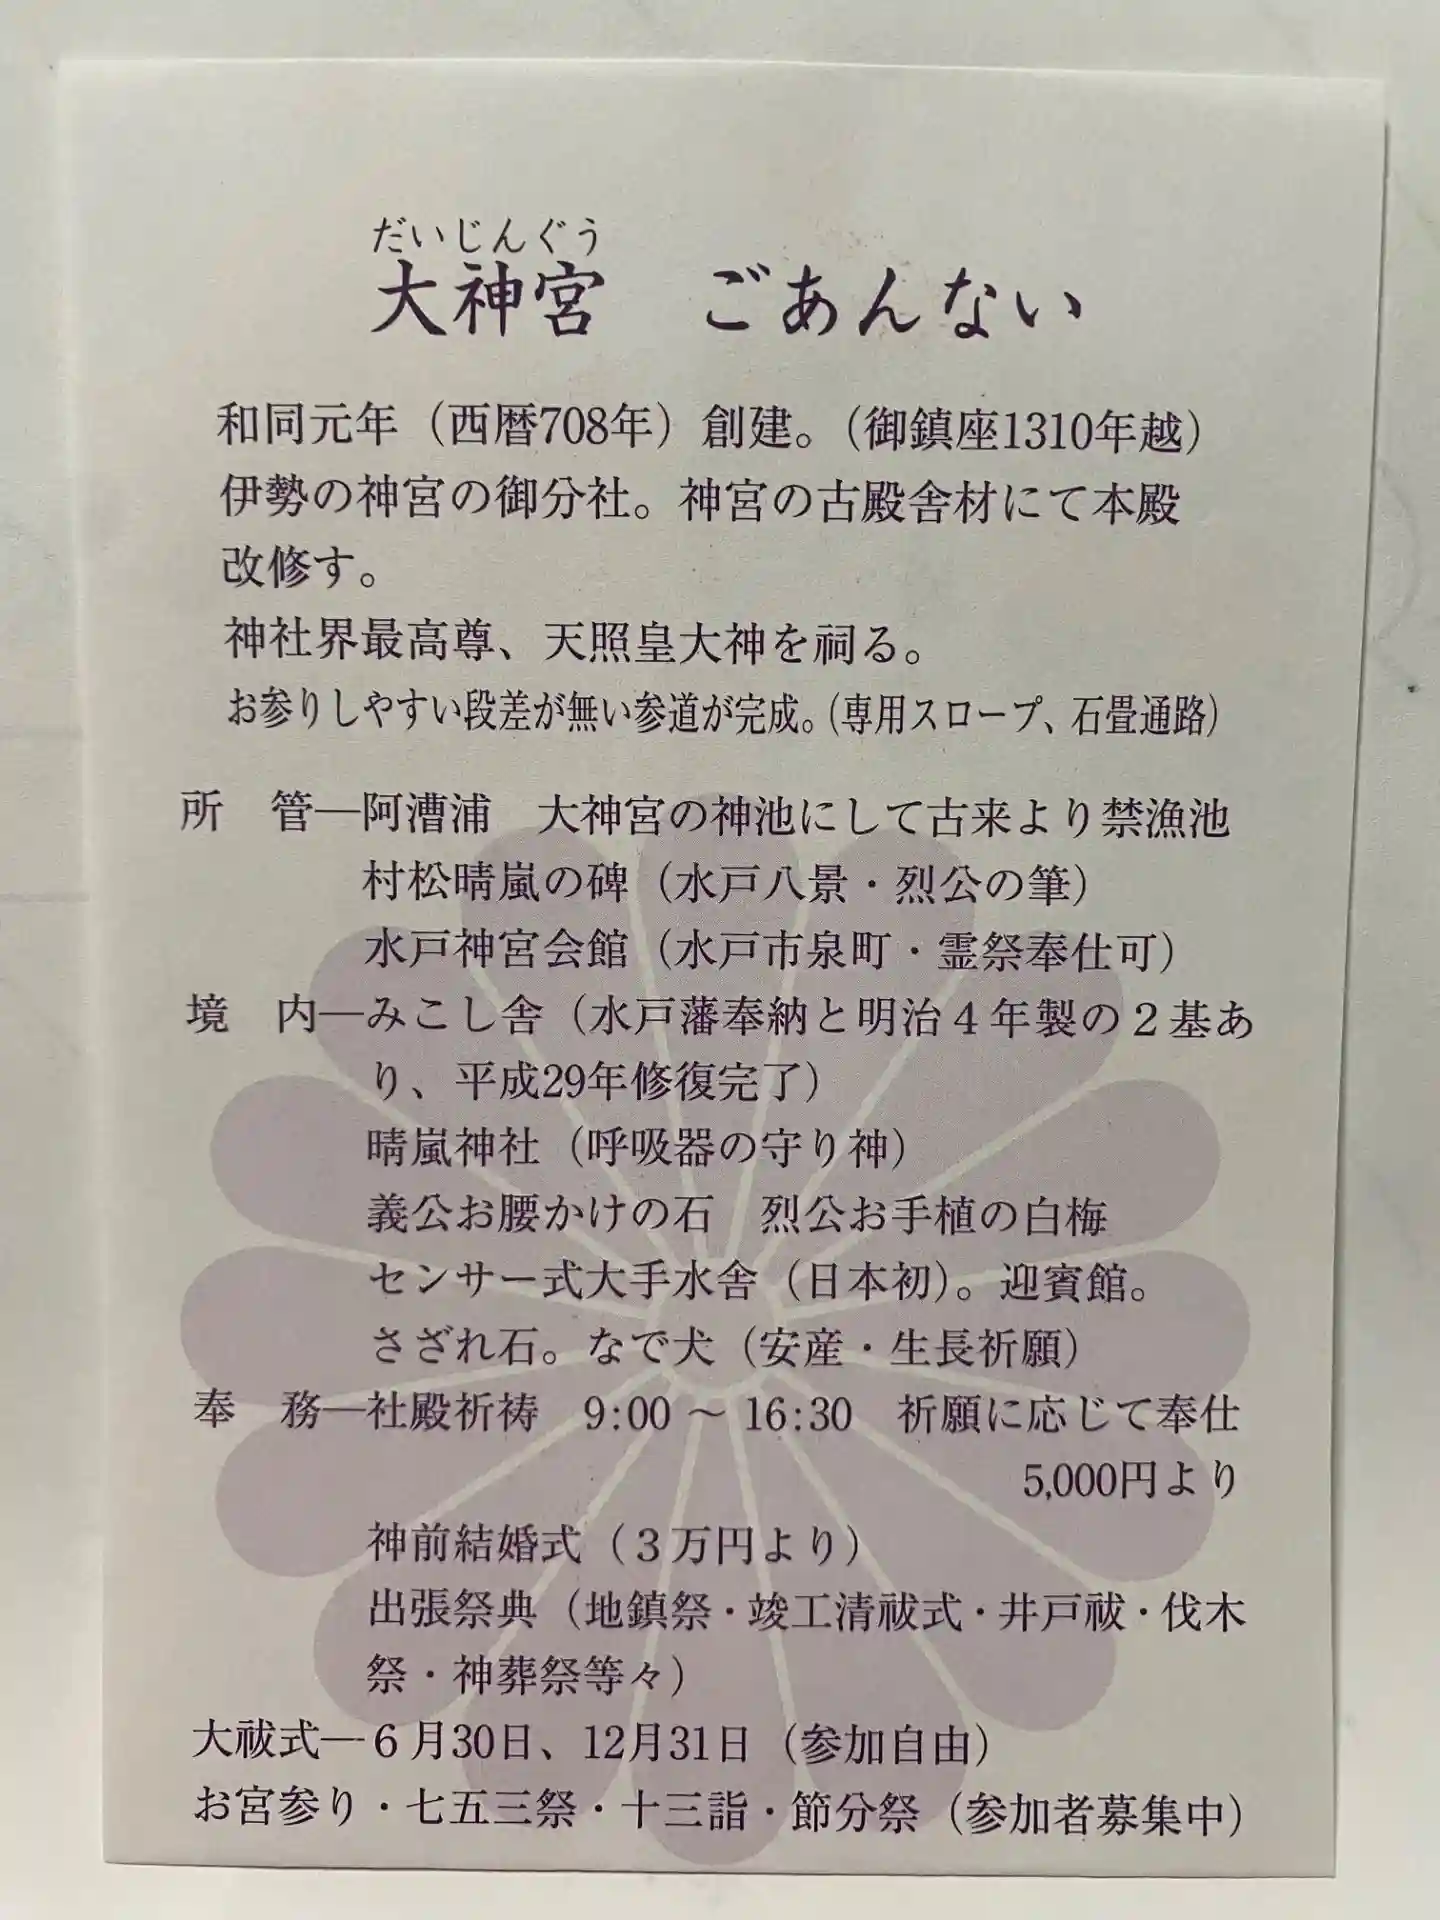 だいじんぐう
大神宮　ごあんない
和同元年（西暦708年）創建。（御鎮座1310年越）
伊勢の神宮の御分社。神宮の古殿舎材にて本殿
改修す。
神社界最高尊、天照皇大神を祠る。
お参りしやすい段差が無い参道が完成。（専用スロープ、石畳通路）
所　管―阿漕浦　大神宮の神池にして古来より禁漁池
村松晴嵐の碑（水戸八景・烈公の筆）
水戸神宮会館（水戸市泉町・霊祭奉仕可）
境　内―みこし舎（水戸藩奉納と明治４年製の２基あ
り、平成29年修復完了）
晴嵐神社（呼吸器の守り神）
義公お腰かけの石　烈公お手植の白梅
センサー式大手水舎（日本初）。迎賓館。
さざれ石。なで犬（安産・生長祈願）
奉　務―社殿祈祷　9:00 ～ 16:30　祈願に応じて奉仕
5,000円より
神前結婚式（３万円より）
出張祭典（地鎮祭・竣工清祓式・井戸祓・伐木
祭・神葬祭等々）
大祓式―６月30日、12月31日（参加自由）
お宮参り・七五三祭・十三詣・節分祭（参加者募集中）